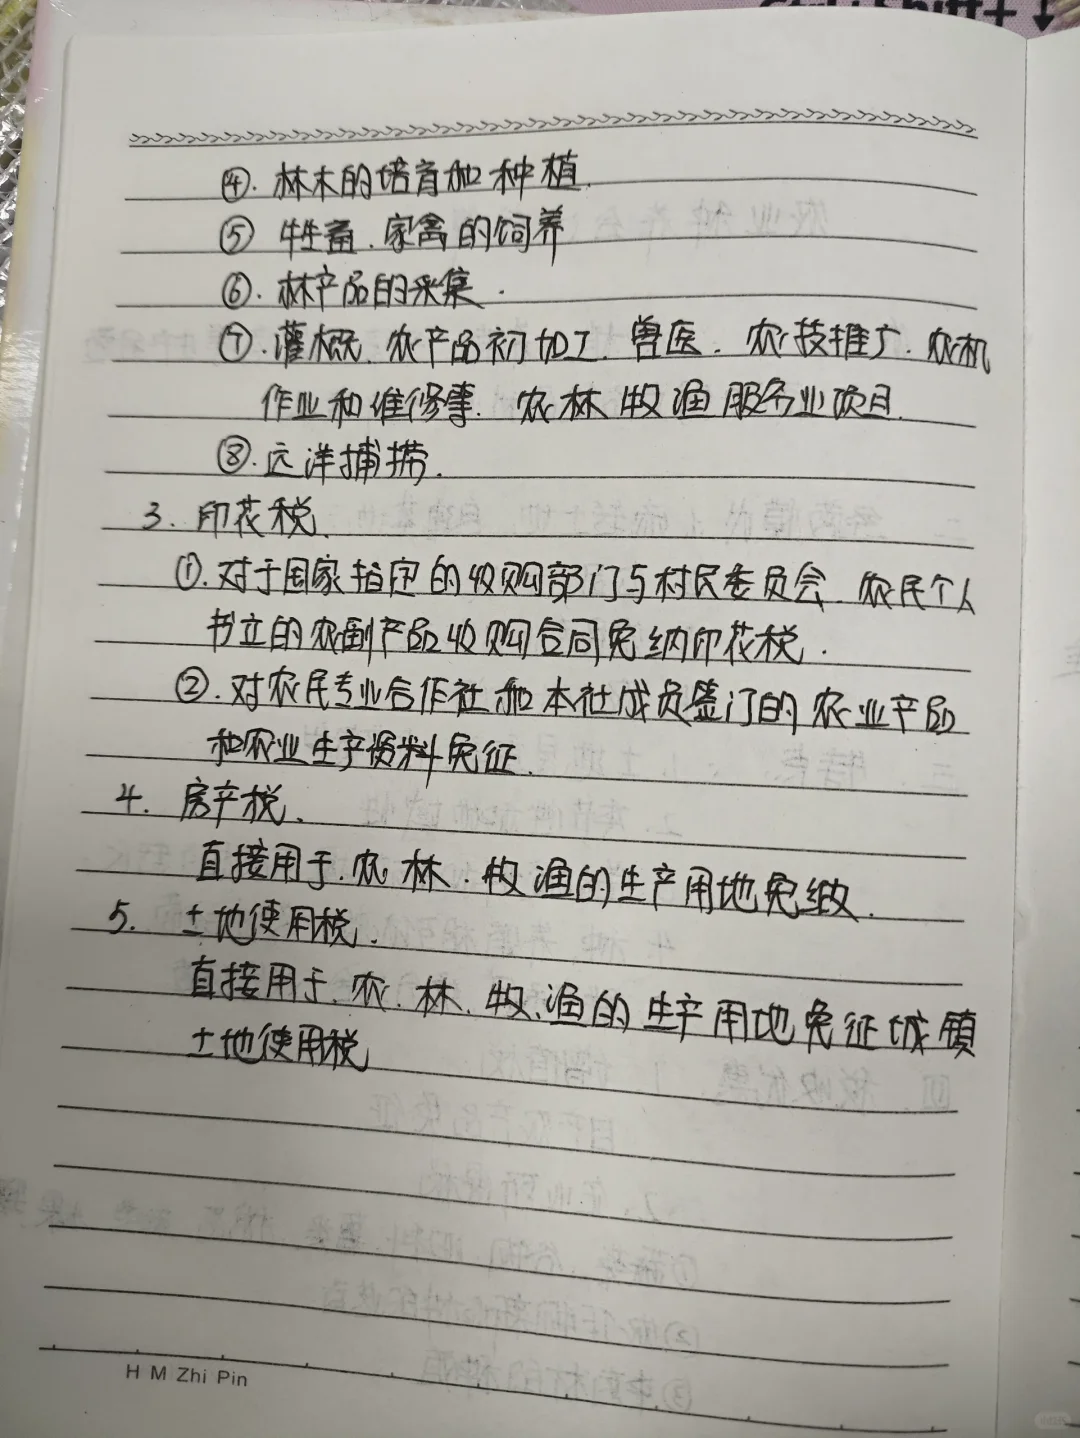 Ctrl+Shift+↓
④. 林木的培育和种植
⑤ 牲畜、家禽的饲养
⑥. 林产品的采集.
⑦. 灌概、农产品初加工、兽医、农技推广、农机
作业和维修等、农、林、牧、渔服务业项目.
⑧. 远洋捕捞.
3. 印花税.
①. 对于国家指定的收购部门与村民委员会、农民个人
书立的农副产品收购合同免纳印花税.
②. 对农民专业合作社和本社成员签订的农业产品
和农业生产资料免征.
4. 房产税.
直接用于、农、林、牧、渔的生产用地免缴.
5. 土地使用税.
直接用于、农、林、牧、渔的生产用地免征城镇
土地使用税
H M Zhi Pin